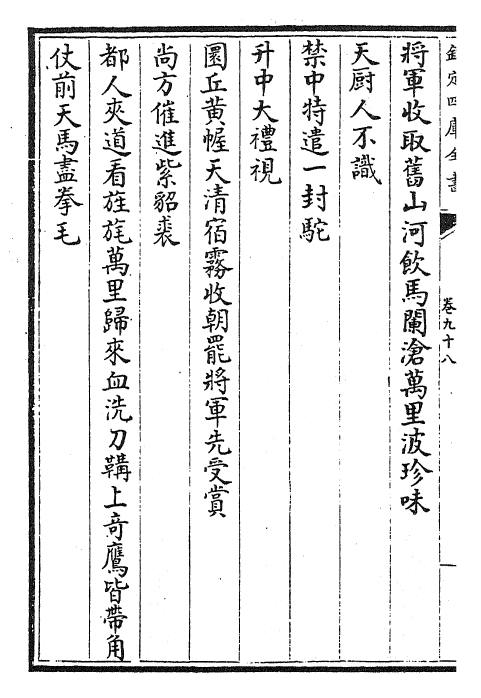 欽定四庫全書
卷九十八
將軍收取舊山河飲馬闌滄萬里波珍味
天厨人不識
禁中特遣一封駝
升中大禮視
圜丘黄幄天清宿霧收朝罷將軍先受賞
尚方催進紫貂裘
都人夾道看旌旄萬里歸來血洗刀鞲上竒鷹皆帶角
仗前天馬盡拳毛